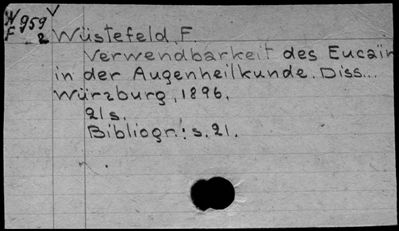 W 959
F 2
Wüstefeld, F.
Verwendbarkeit des Eucaïn
in der Augenheilkunde. Diss...
Würzburg, 1896.
21 s.
Bibliogr.: s. 21.